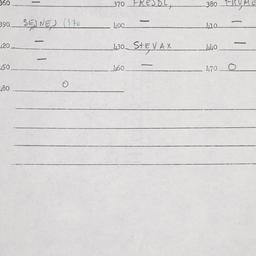 360 — 370 FREJDL, 380 FRYME
390 SEJNEJ (370 400 — 410 —
420 — 430 STEVAX 440 —
450 — 460 — 470 O
480 O